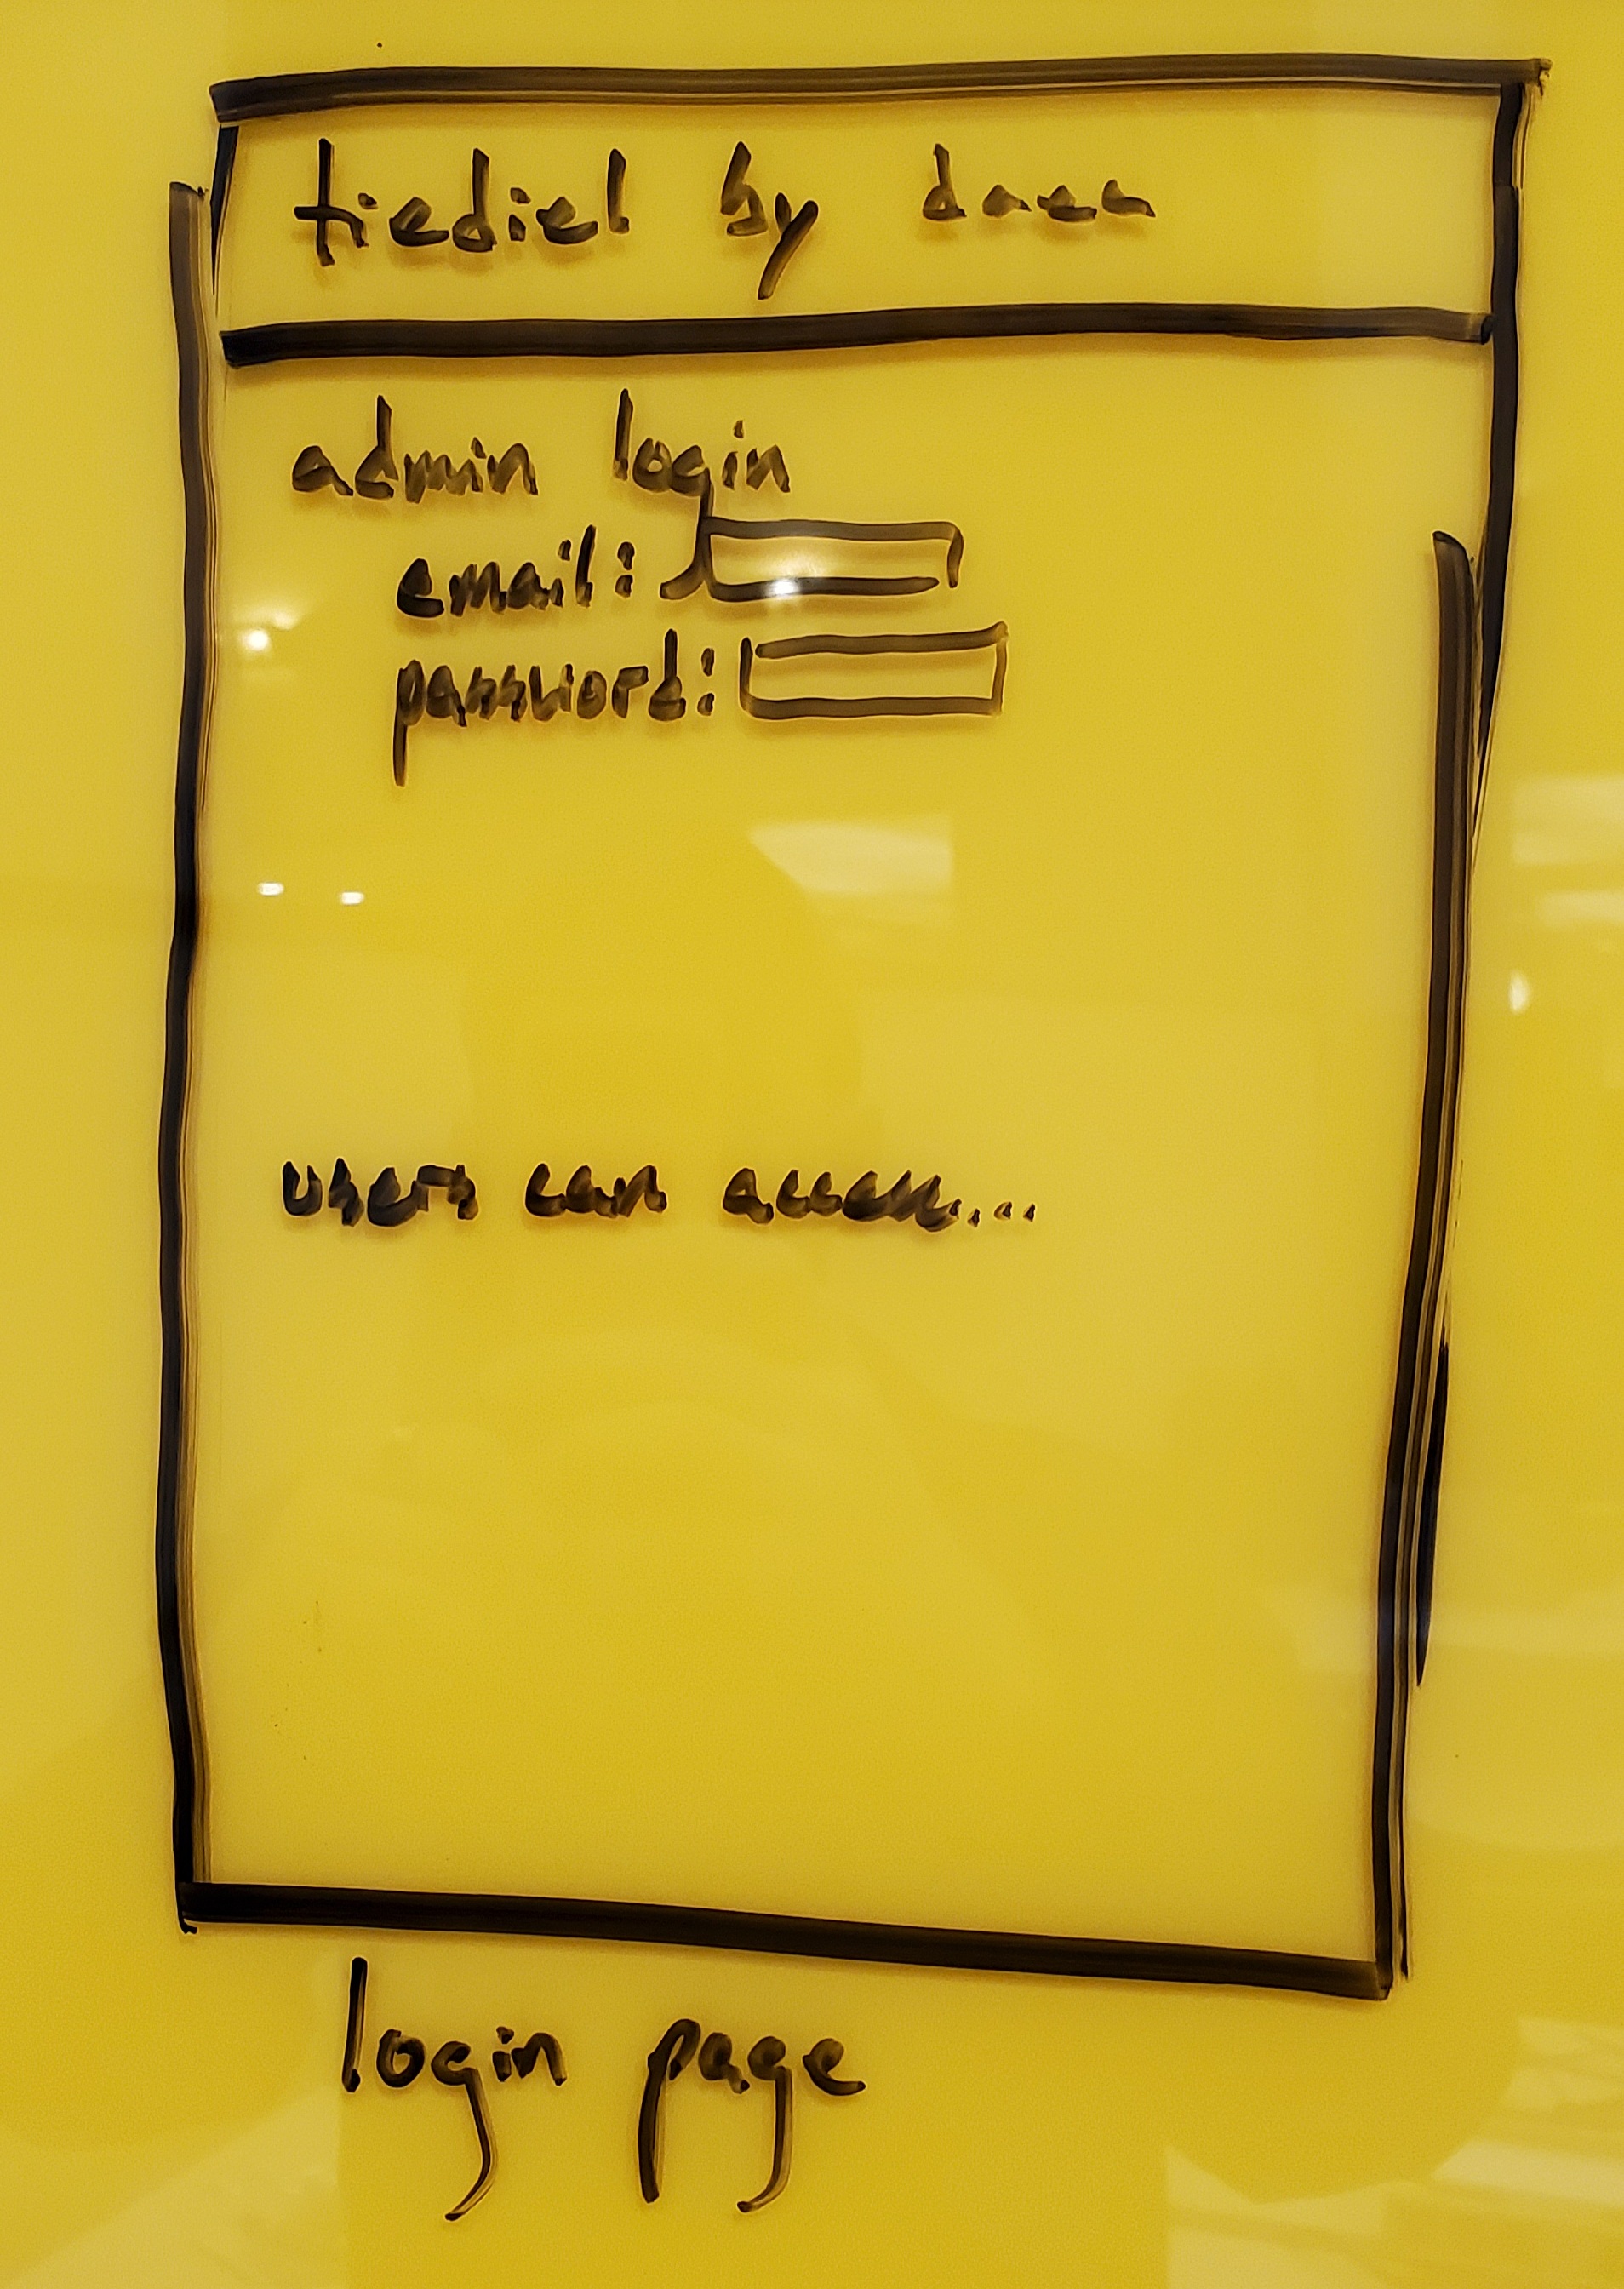 tiediel by daea
admin login
email:
password:
users can access....
login page